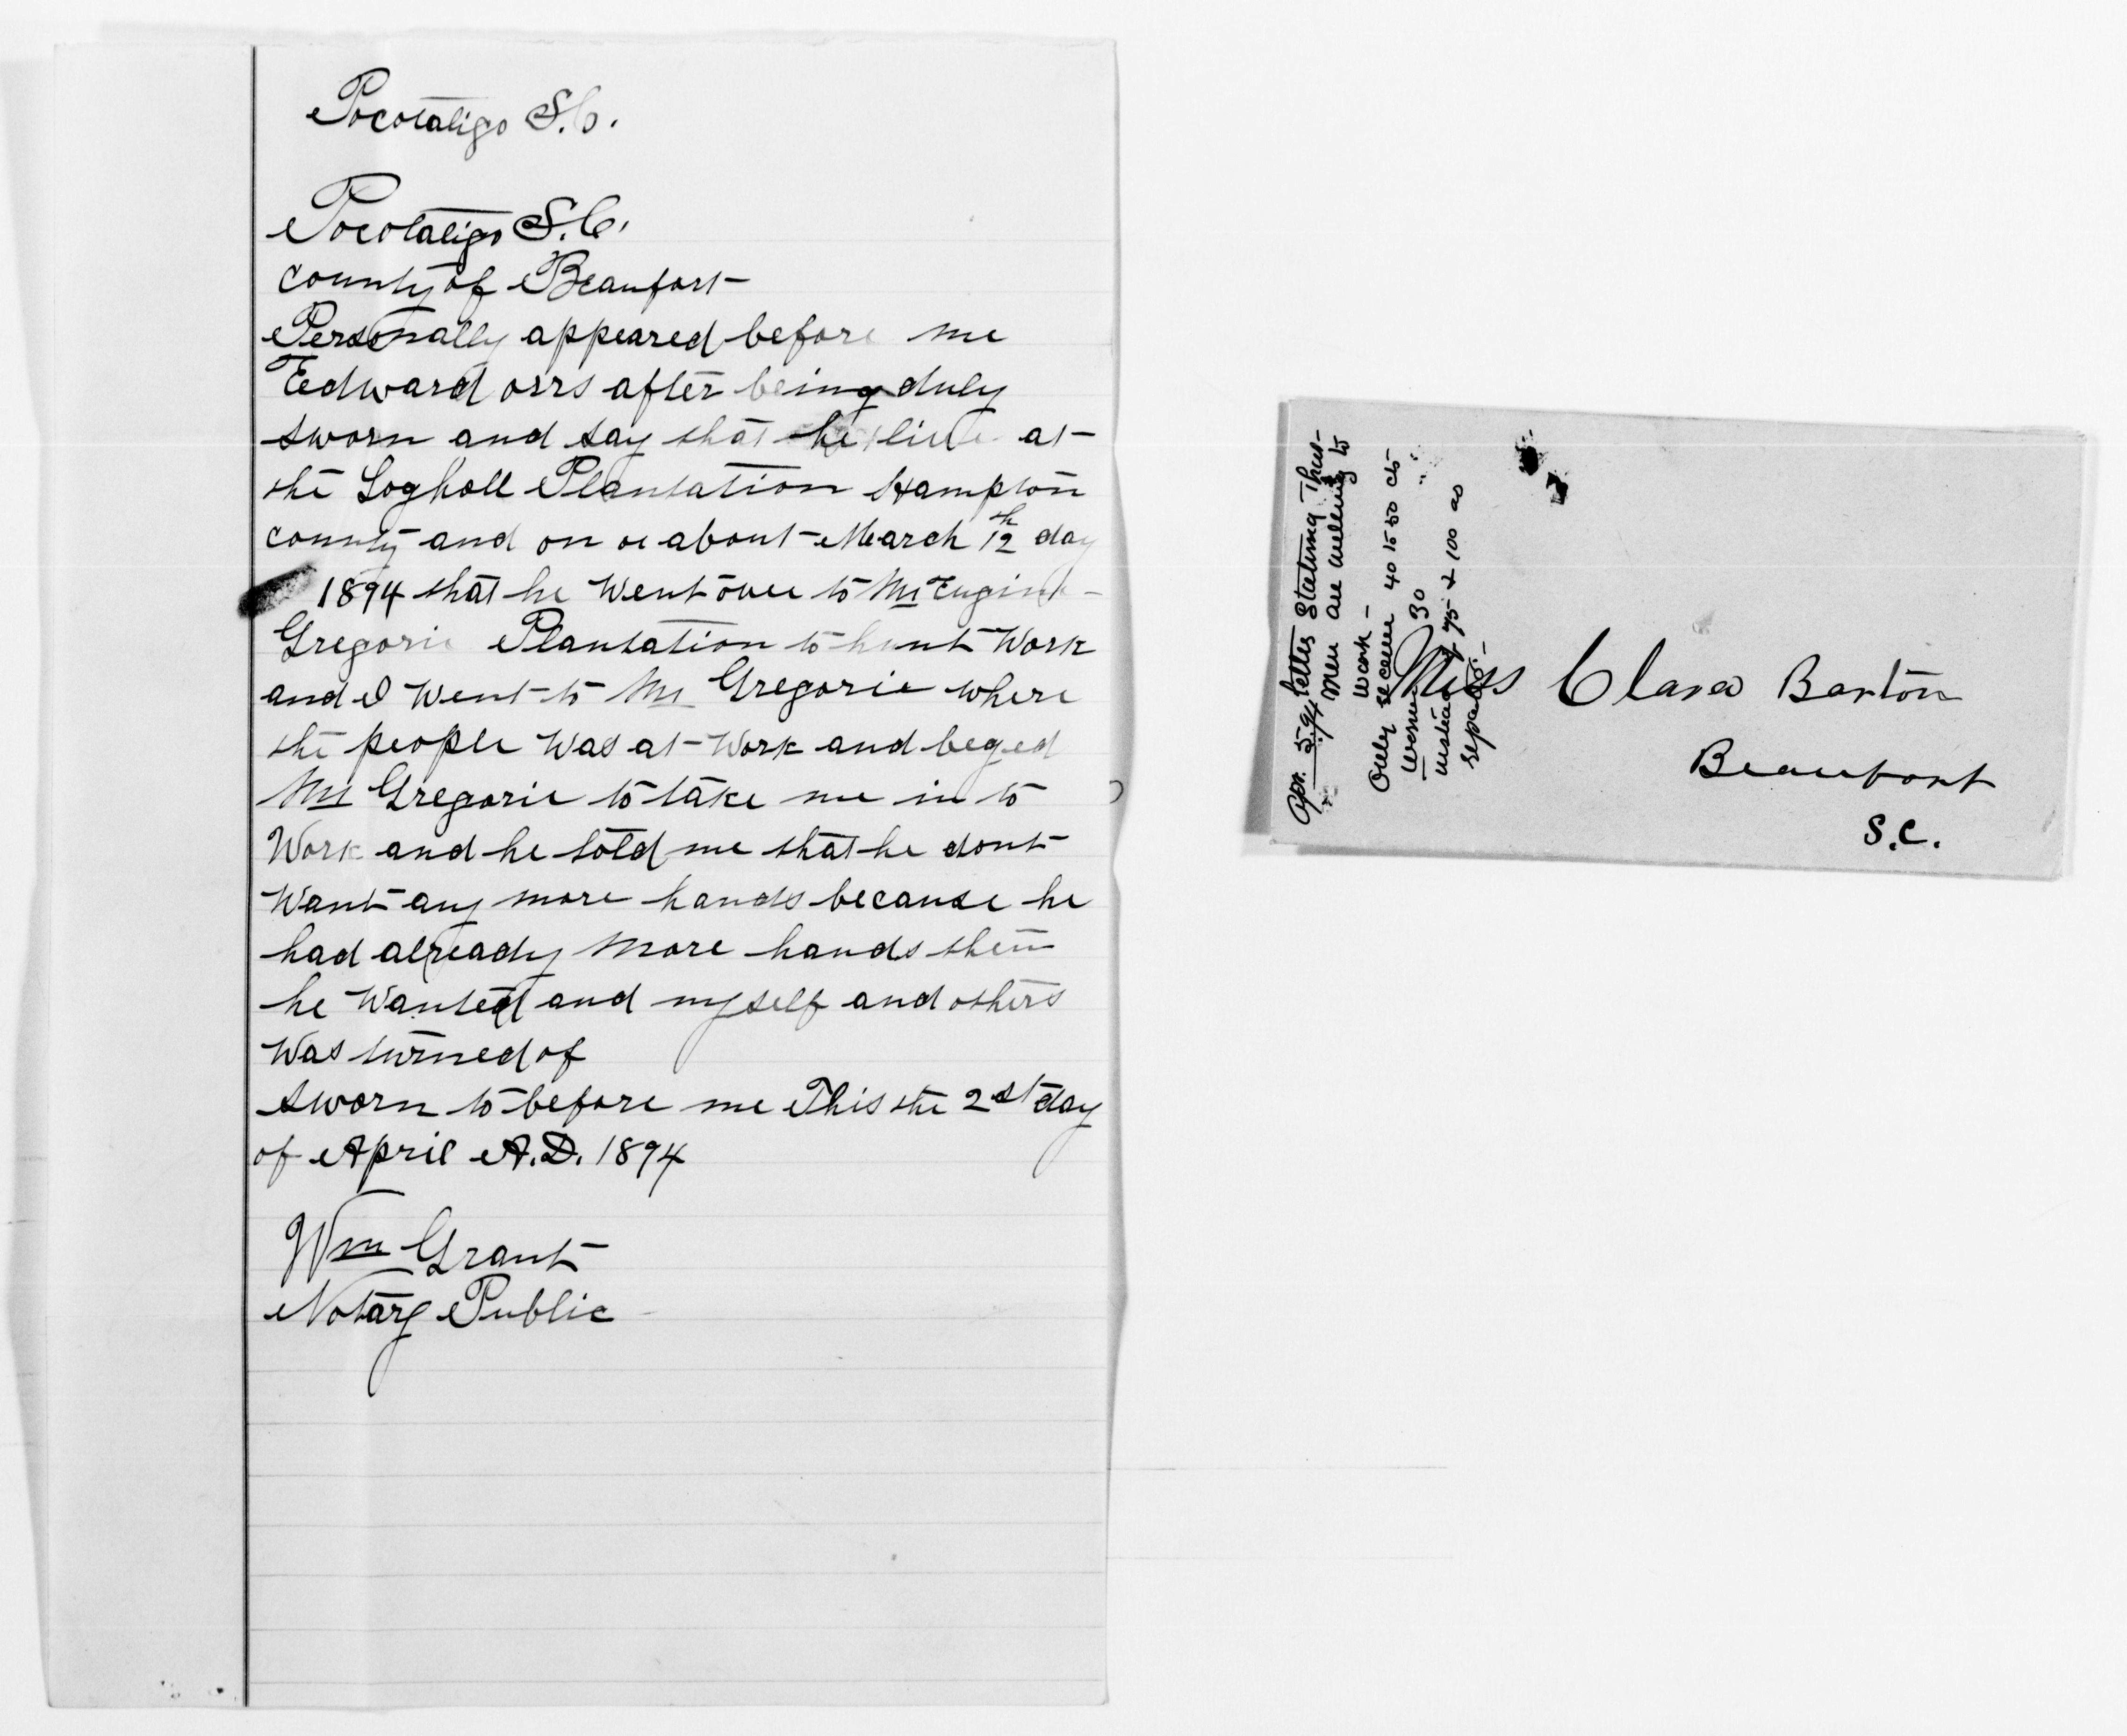 Pocotaligo S.C.
Pocotaligo S.C.
county of Beaufort
Personally appeared before me
Eedward orrs after being duly
sworn and say that he live at
the Loghall Plantation Hampton
county and on or about March 12th day
1894 that he Went over to Mr Eugine
Gregorie Plantation to hunt Work
and I Went to Mr Gregorie where
the people Was at Work and beged
Mr Gregorie to take me in to
Work and he told me that he dont
Want any more hands because he
had already more hands then
he Wanted and myself and others
Was turned of
sworn to before me This the 2st day
of April A.D. 1894
Wm Grant
Notary Public
Apr. 5. 94 Letter Stating that
men are willing to
work -
Only receive 40 to 50 cts
Women 30 " "
instead of 75 & 100 as
Miss Clara Barton
Beaufort
S.C.